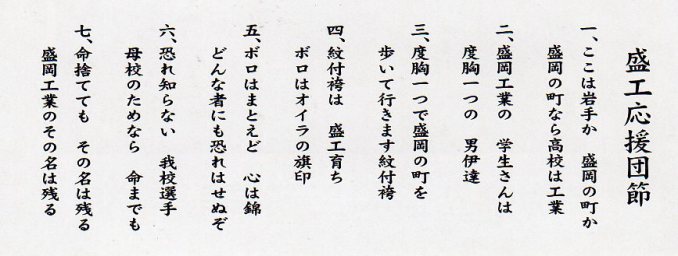 盛工応援団節
一、ここは岩手か　盛岡の町か
盛岡の町なら高校は工業
二、盛岡工業の　学生さんは
度胸一つの　男伊達
三、度胸一つで盛岡の町を
歩いて行きます紋付袴
四、紋付袴は　盛工育ち
ボロはオイラの旗印
五、ボロはまとえど　心は錦
どんな者にも恐れはせぬぞ
六、恐れ知らない　我校選手
母校のためなら　命までも
七、命捨てても　その名は残る
盛岡工業のその名は残る